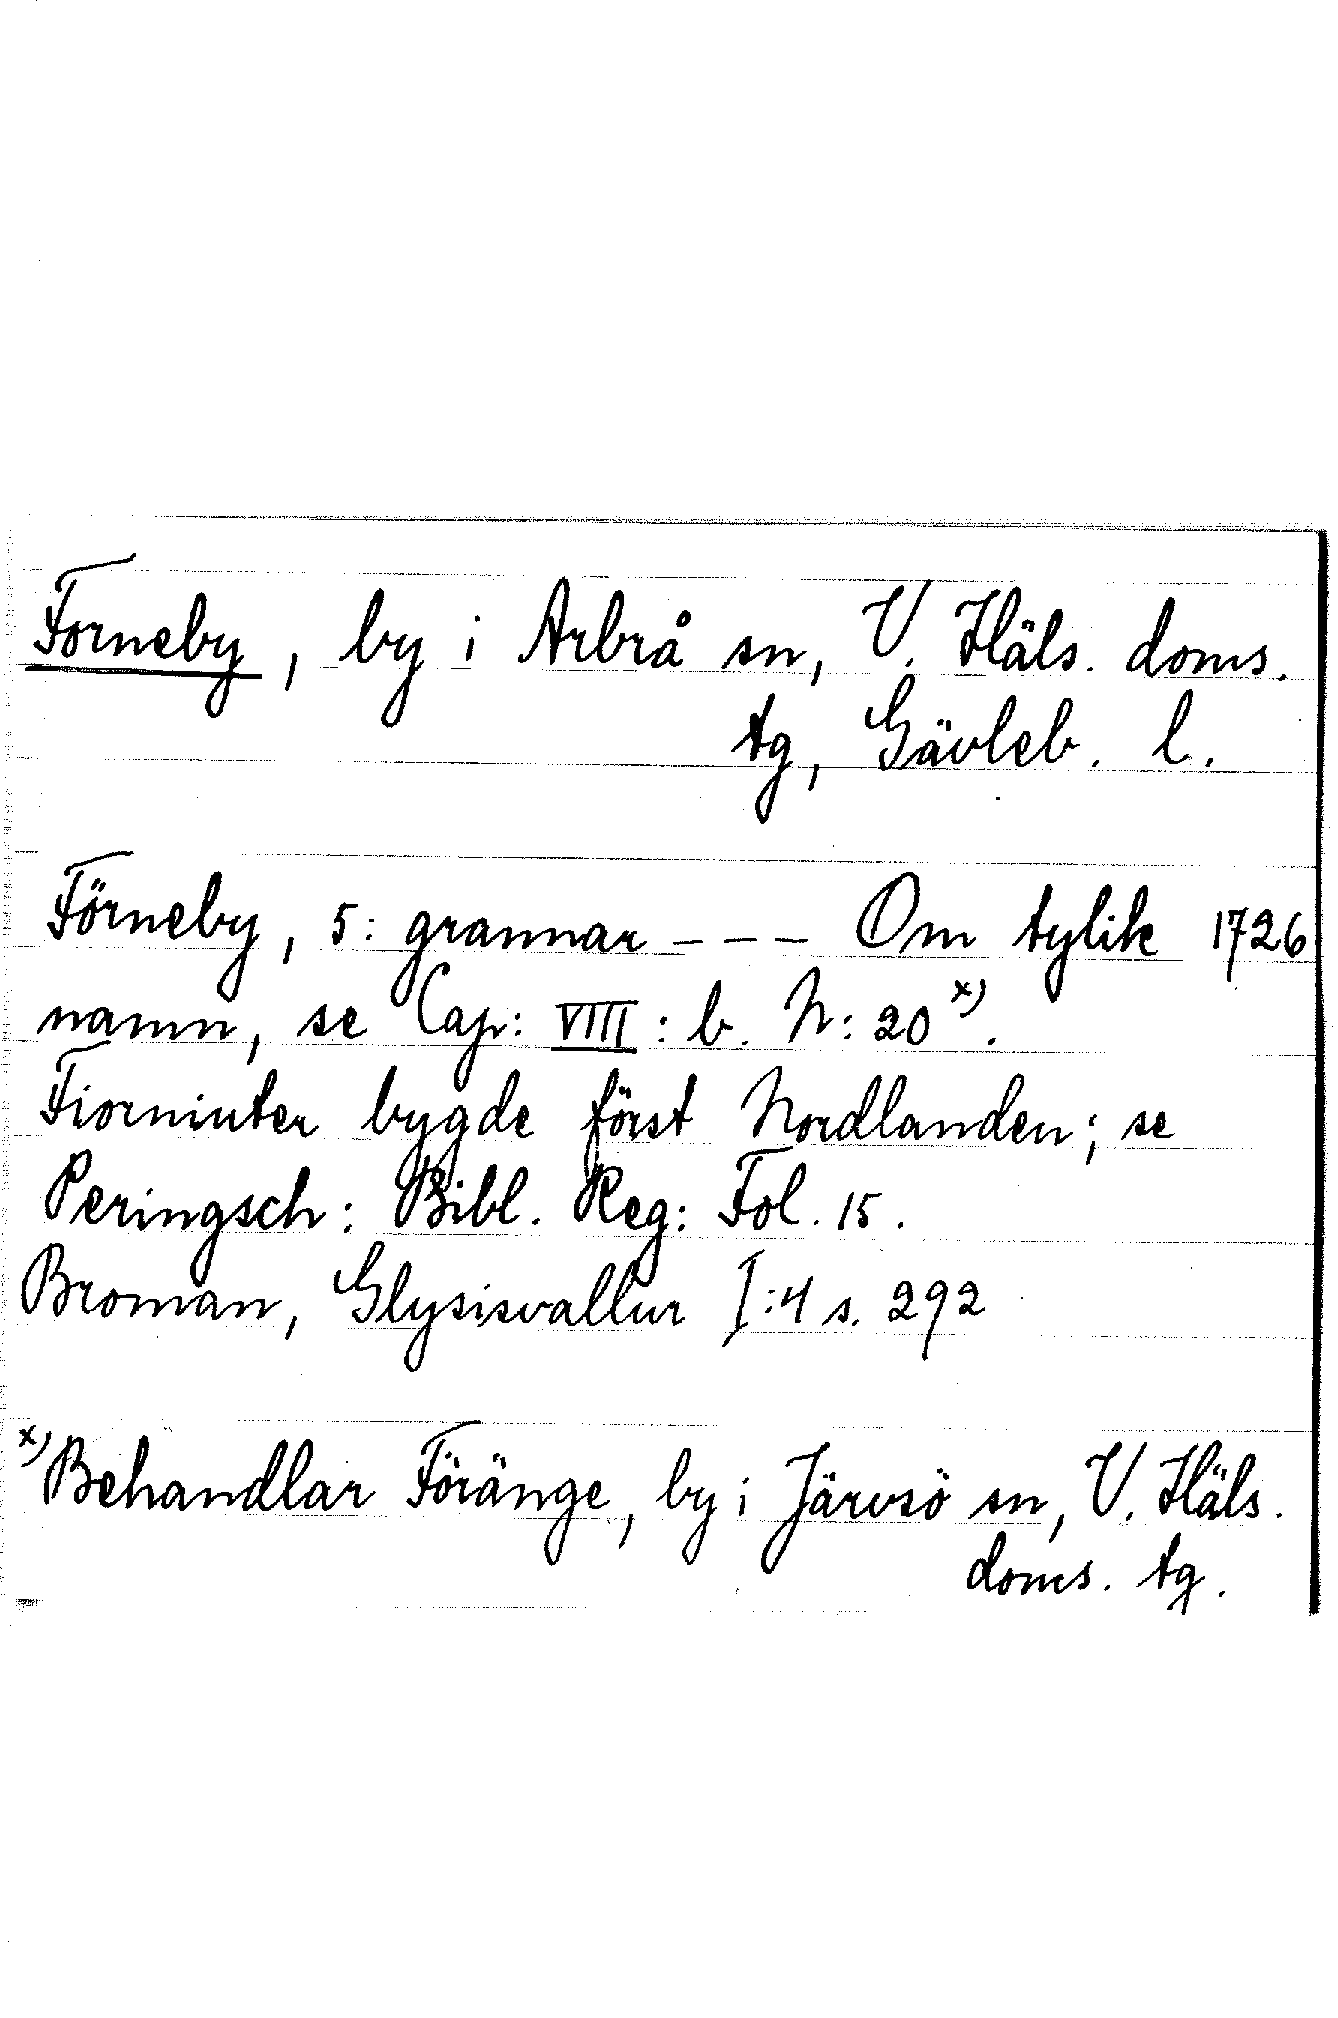 Forneby, by i Arbrå sn, V. Häls. doms.
tg, Gävleb. l.
Förneby, 5: grannar --- Om tylik 1726
namn, se Cap: VIIII: b. N: 20 x).
Fiorniuter bygde först Nordlanden; se
Peringsch: Bibl. Reg: Fol. 15.
Broman, Glysisvallur I:4 s. 292
x) Behandlar Föränge, by i Järvsö sn, V. Häls.
doms. tg.